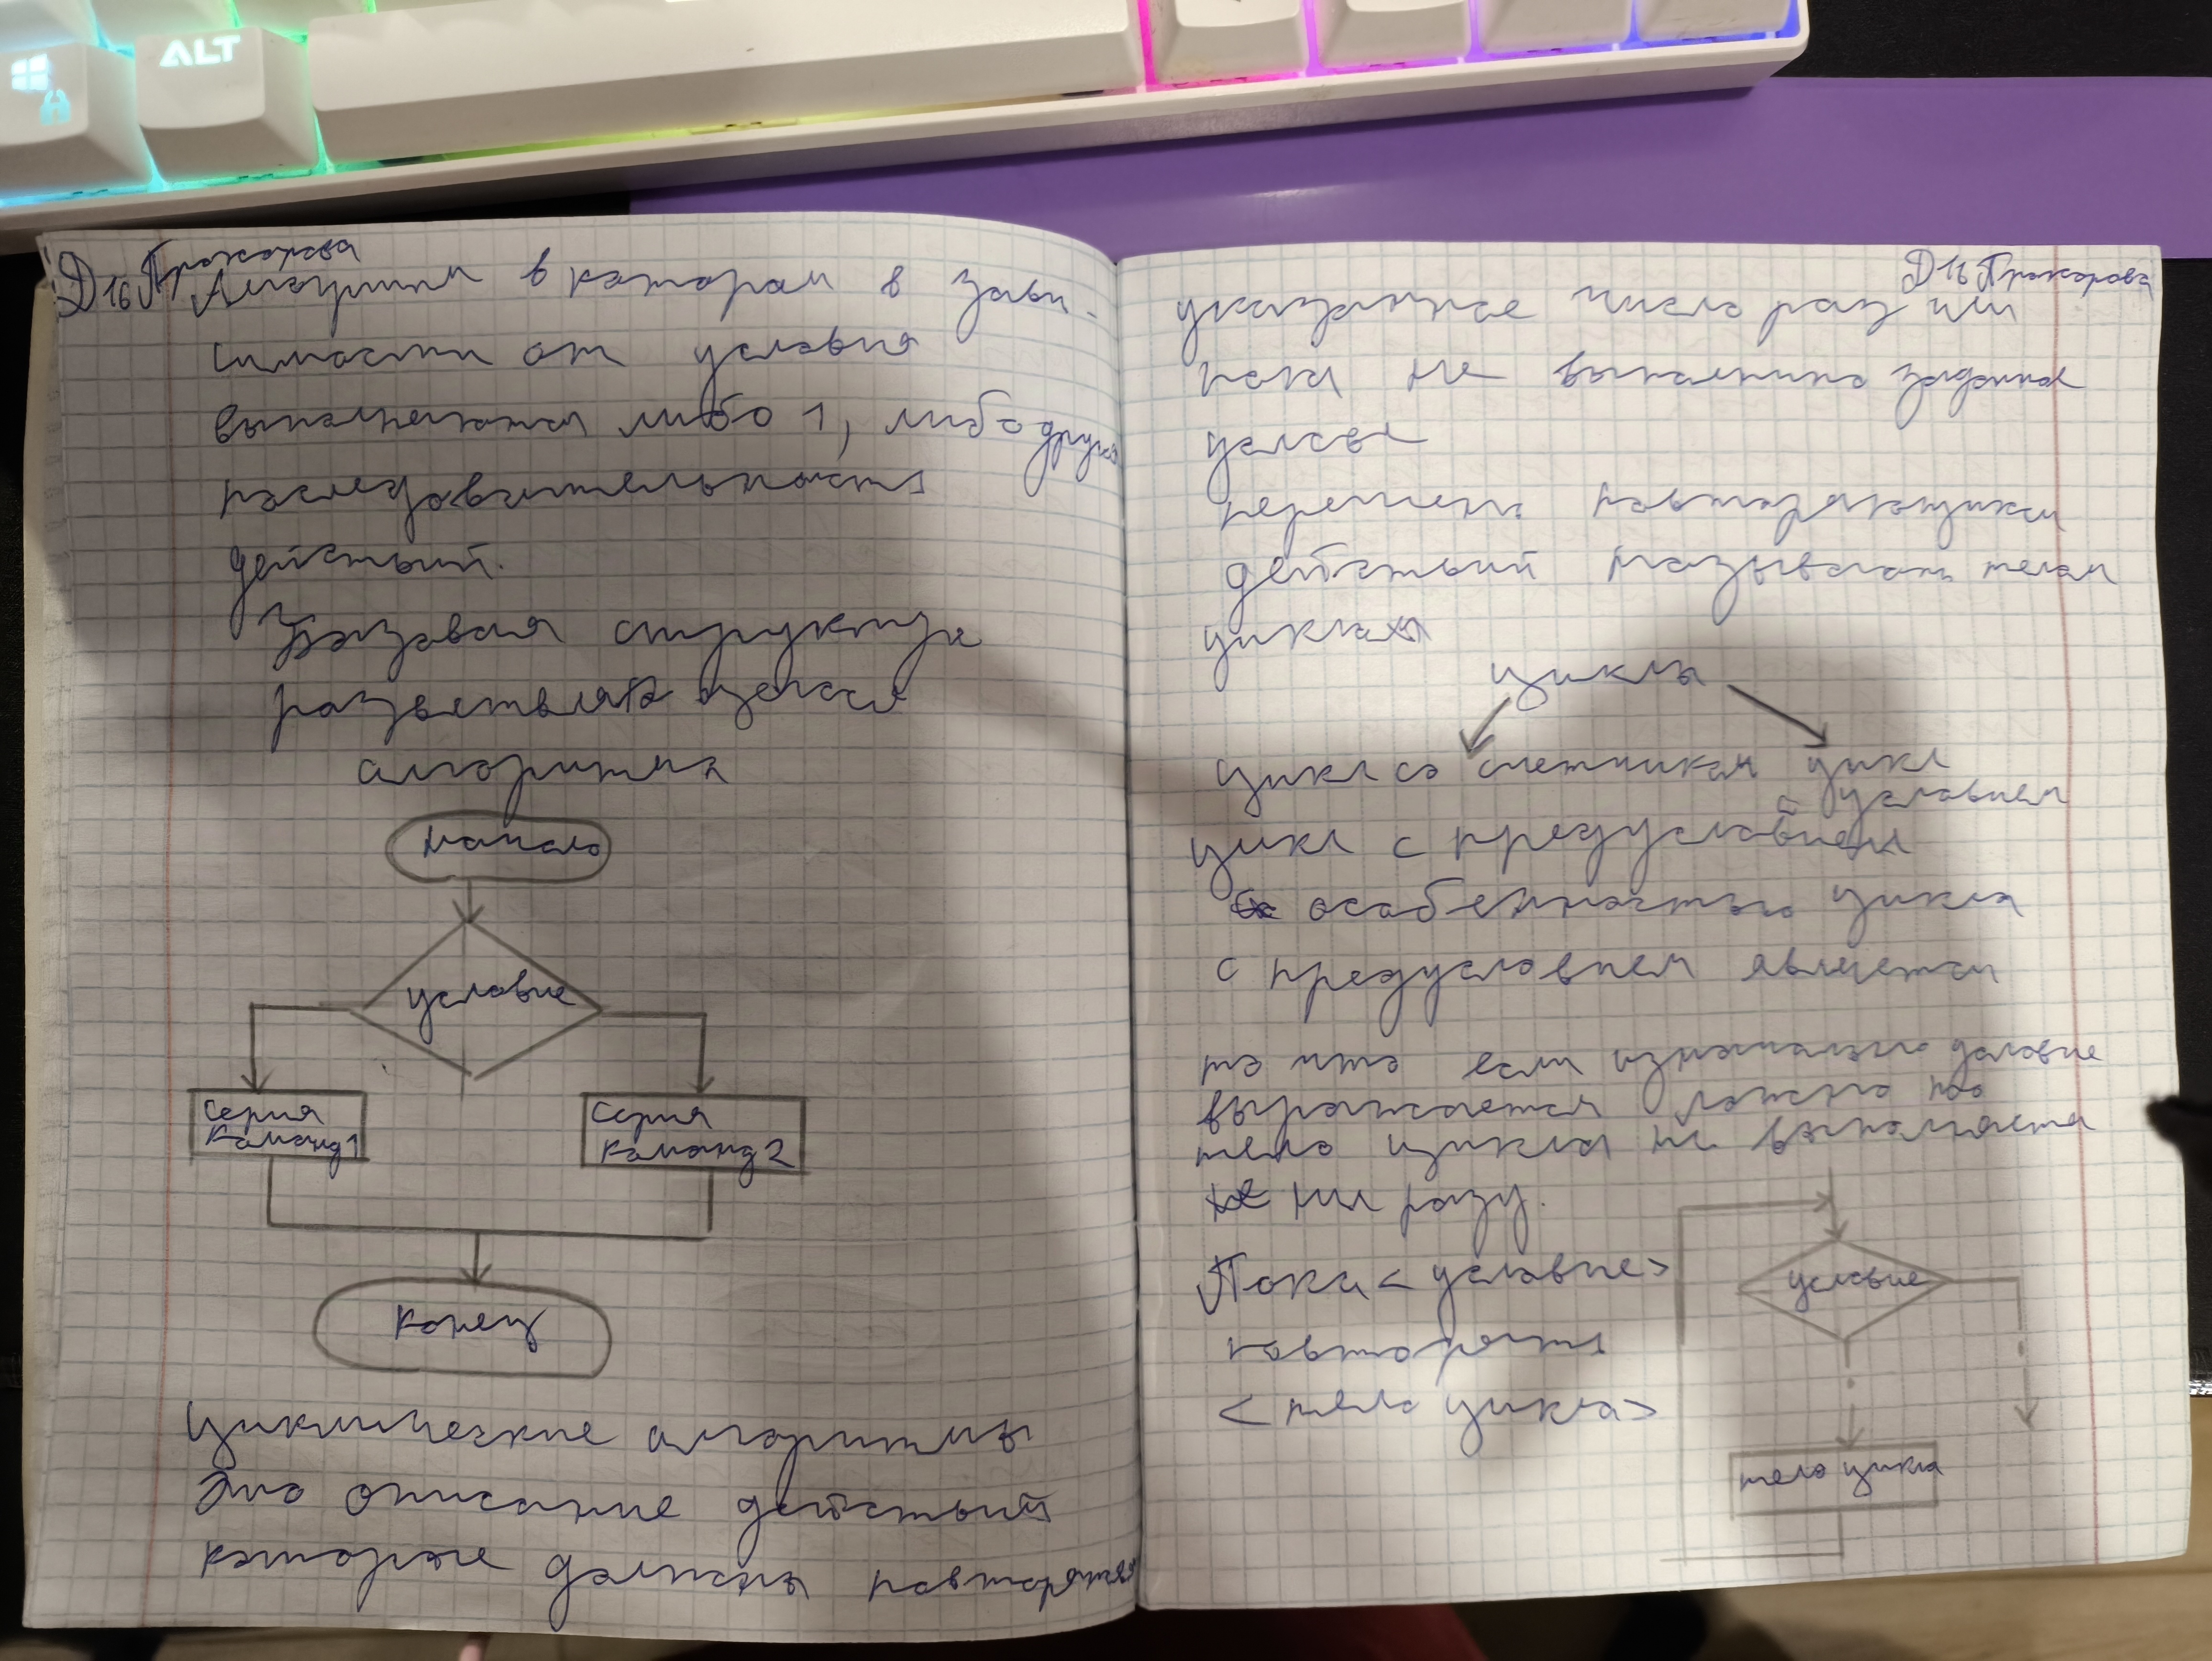 ALT
Д16 Прохорова
Алгоритм в котором в зави-
симости от условия
выполняются либо 1, либо другая
последовательность
действий.
Базовая структура
разветвляющегося
алгоритма
начало
условие
серия
команд 1
серия
команд 2
конец
циклические алгоритмы
это описание действий
которые должны повторяться
Д16 Прохорова
указанное число раз или
пока не выполнено заданное
условие
перечень повторяющихся
действий называют телом
цикла
циклы
цикл со счетчиком цикл
с условием
цикл с предусловием
особенностью цикла
с предусловием является
то что если изначально условие
выражается ложно то
тело цикла не выполняется
ни разу.
Пока <условие>
повторять
<тело цикла>
условие
тело цикла